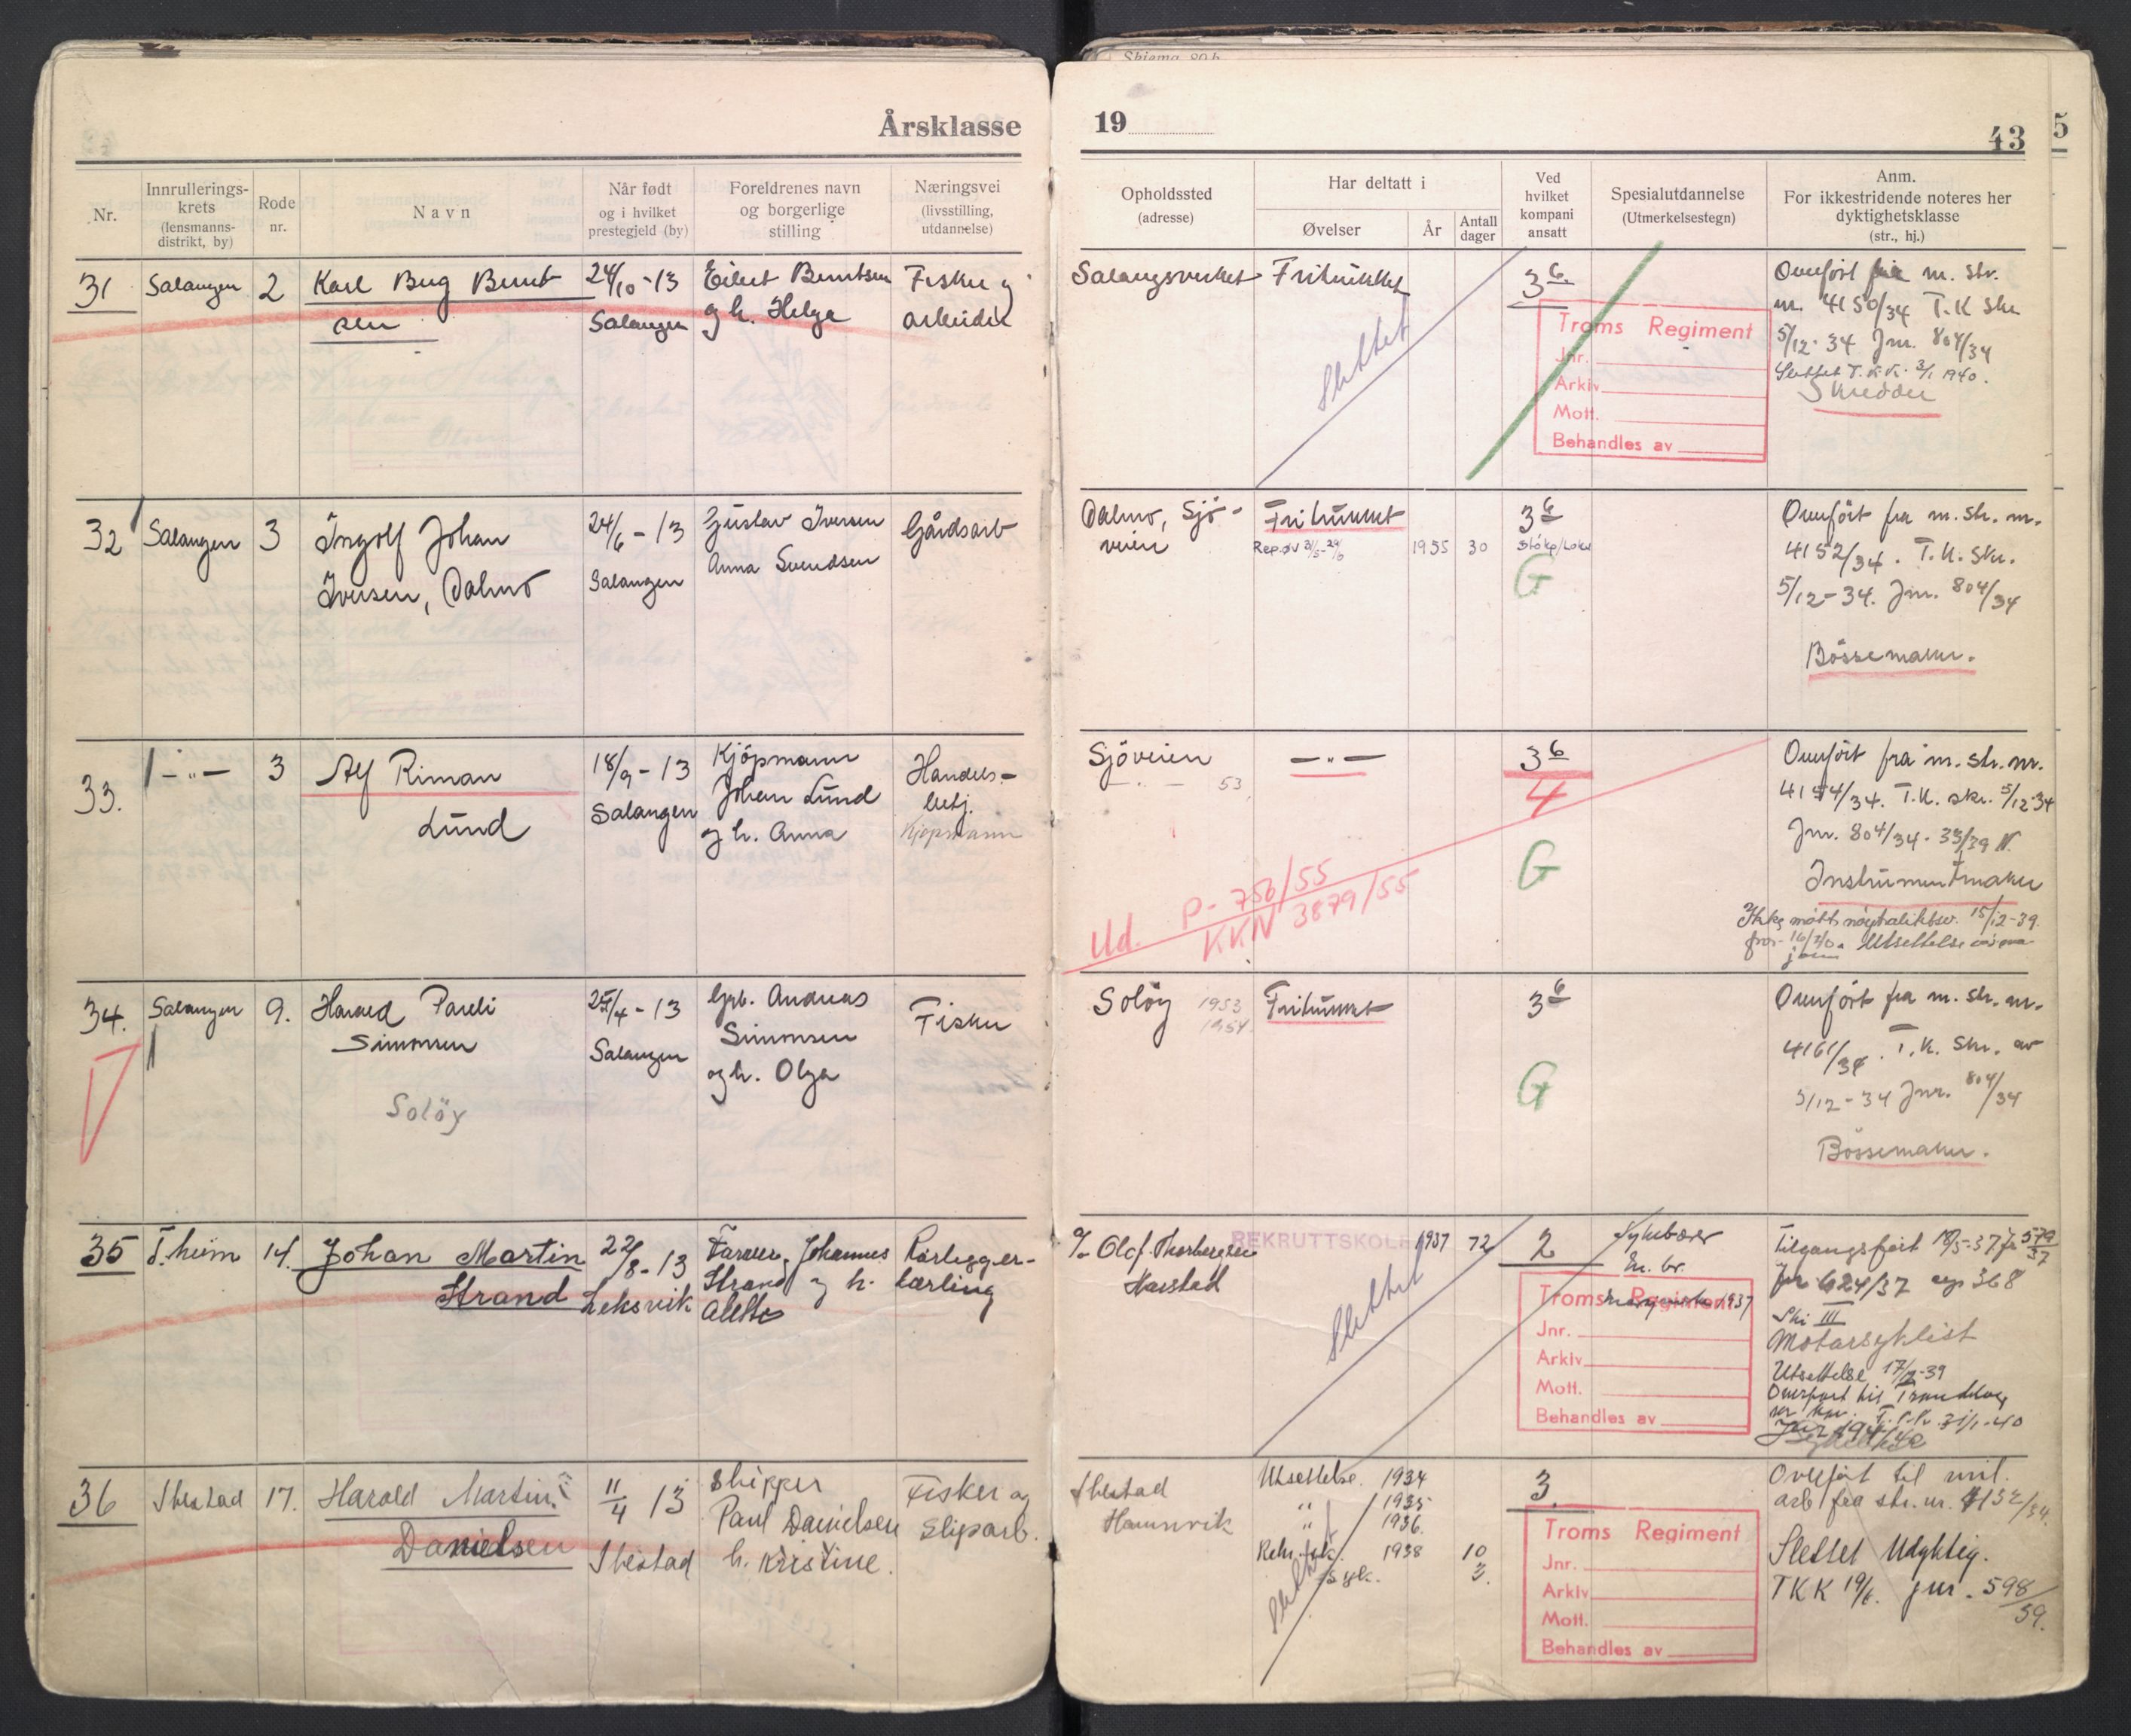 Skjema 80 b
Årsklasse
19
43
5
Nr.
Innrullerings-
krets
(lensmanns-
distrikt, by)
Rode
nr.
Navn
Når født
og i hvilket
prestegjeld (by)
Foreldrenes navn
og borgerlige
stilling
Næringsvei
(livsstilling,
utdannelse)
Opholdssted
(adresse)
Har deltatt i
Øvelser
År
Antall
dager
Ved
hvilket
kompani
ansatt
Spesialutdannelse
(Utmerkelsestegn)
Anm.
For ikkestridende noteres her
dyktighetsklasse
(str., hj.)
31
Salangen
2
Karl Berg Bernt
sen
24/10-13
Salangen
Eilert Berntsen
og h. Helga
Fisker og
arbeider
Salangsverket
Fritunket
Slettet
3 6
Troms Regiment
Jnr.
Arkiv
Mott.
Behandles av
Overført fra m. str.
nr. 4150/34 T.K skr
5/12-34 Jnr. 804/34
Slettet T.K.K. 3/1 1940.
Skredder
32
Salangen
3
Ingolf Johan
Iversen, Dalmo
24/6-13
Salangen
Gustav Iversen
Anna Svendsen
Gårdsarb
Dalmo, Sjö-
veien
Fritunket
Rep.øv
1955
30
3 6
G
Overført fra m. str. nr.
4152/34. T.K. Skr.
5/12-34. Jnr. 804/34
Bössemaker.
33.
-"-
3
Alf Riman
Lund
18/9-13
Salangen
Kjöpmann
Johan Lund
og h. Anna
Handels-
betj.
Kjöpmann
Sjöveien
53
-"-
3 6
4
G
Ud. P- 756/55
KKN 3879/55
Overført fra m. str. nr.
4154/34. T.K. skr. 5/12-34
Jnr. 804/34
Instrumentmaker
Ikke møtt nøytralitetsv. 15/12-39.
Utsettelse
34.
Salangen
9.
Harald Pareli
Simonsen
Solöy
25/4-13
Salangen
Grb. Andreas
Simonsen
og h. Olga
Fisker
Solöy
1953
1954
Fritunket
3 6
G
Overført fra m. str. nr.
4161/34. T.K. Skr. av
5/12-34 Jnr. 804/34
Bössemaker.
35
T.heim
14.
Johan Martin
Strand
22/8-13
Leksvik
Farver Johannes
Strand og h.
Alette
Rørlegger-
lærling
c/o Olaf Thorbergsen
Harstad
REKRUTTSKOLE
1937
72
Slettet
2
Sykebærer
Troms Regiment
1937
Jnr.
Arkiv
Mott.
Behandles av
Tilgangsført 19/5-37 fra 579/37
Jnr 624/37 rep 368
Ski III
Motorsyklist
Utsettelse 17/2-39
Overført til Trøndelag
T.K.K. 31/1-40
36
Ibestad
17.
Harald Martin
Danielsen
11/4 13
Ibestad
Skipper
Paul Danielsen
h. Kristine.
Fisker og
sliparb.
Ibestad
Hamnvik
Utsettelse. 1934
" 1935
" 1936.
Rekr.sk. 1938
10
3.
Slettet
3.
Troms Regiment
Jnr.
Arkiv
Mott.
Behandles av
Overført til mil.
arb fra str. nr. 4132/34.
Slettet Udyktig.
TKK 19/6. jnr. 598/39.